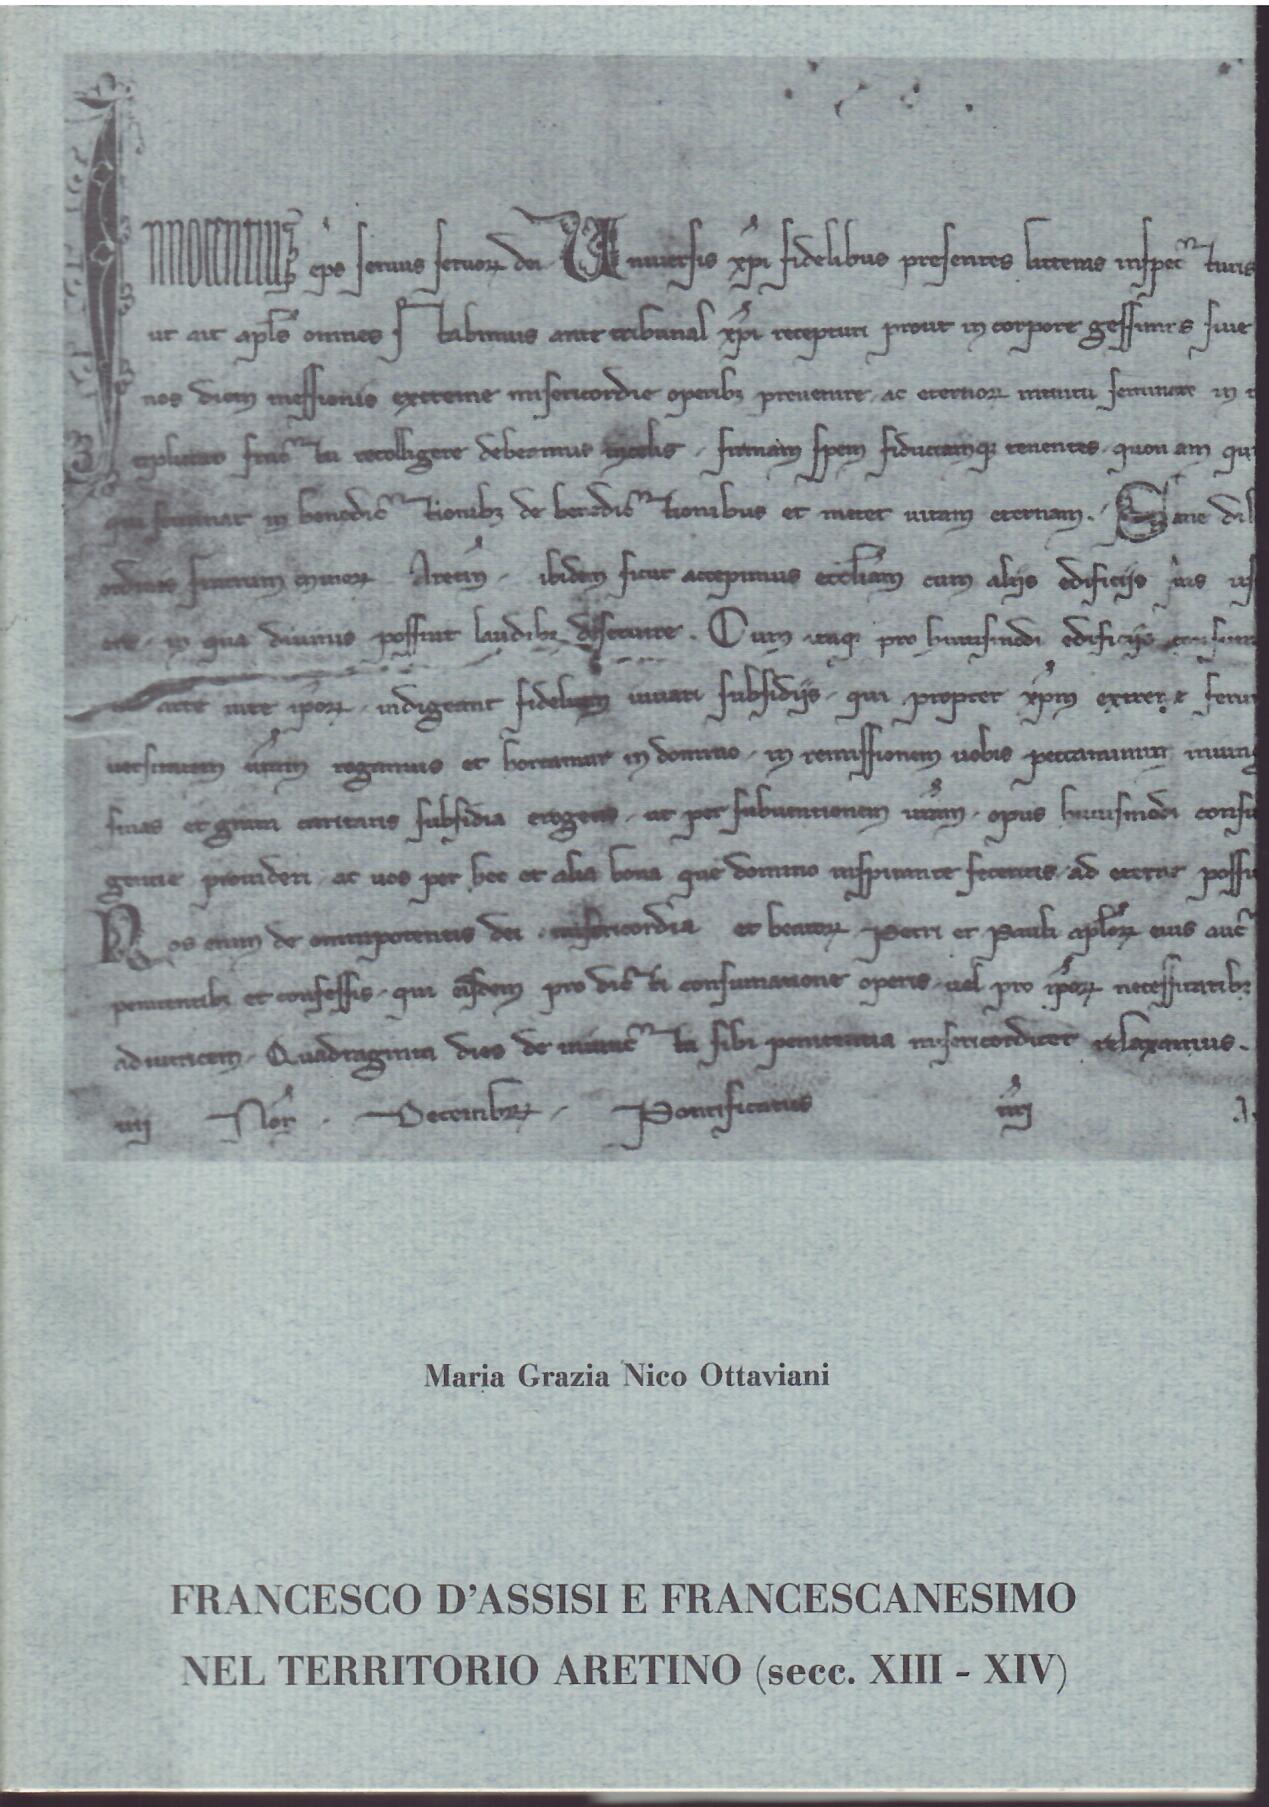 INNOCENTIUS eps seruus seruor dei Uniuersis xpi fidelibus presentes litteras inspecturis
ut ait apls omnes stabimus ante tribunal xpi recepturi prout in corpore gessimus siue
nos diem messionis extreme misericordie operibz preuenire ac eternor intuitu seminare in
fructu recolligere debeamus in celis firmam spem fiduciamq tenentes quoniam qui
qui seminat in benedictionibz de benedictionibus et metet uitam eternam. Sane dil
fratrum minor Aretin ibidem sicut accepimus eccliam cum aliis edificiis
in qua diuinis possint laudibz deseruire. Cum itaq pro huiusmodi edificiis
ipor indigeant fidelium iuuari subsidiis qui propter xpm
uram rogamus et hortamur in domino in remissionem uobis peccaminum
et grata caritatis subsidia erogetis ut per subuentionem uram opus huiusmodi
prouideri ac uos per hec et alia bona que domino inspirante feceritis ad eterne
Nos enim de omnipotentis dei misericordia et beator Petri et Pauli aplor eius auct
penitentibz et confessis qui eisdem pro dicti consumatione operis uel pro ipor necessitatibz
adiutricem Quadraginta dies de iniuncta sibi penitentia misericorditer relaxamus.
iiii Non Decembr Pontificatus
Maria Grazia Nico Ottaviani
FRANCESCO D'ASSISI E FRANCESCANESIMO
NEL TERRITORIO ARETINO (secc. XIII - XIV)